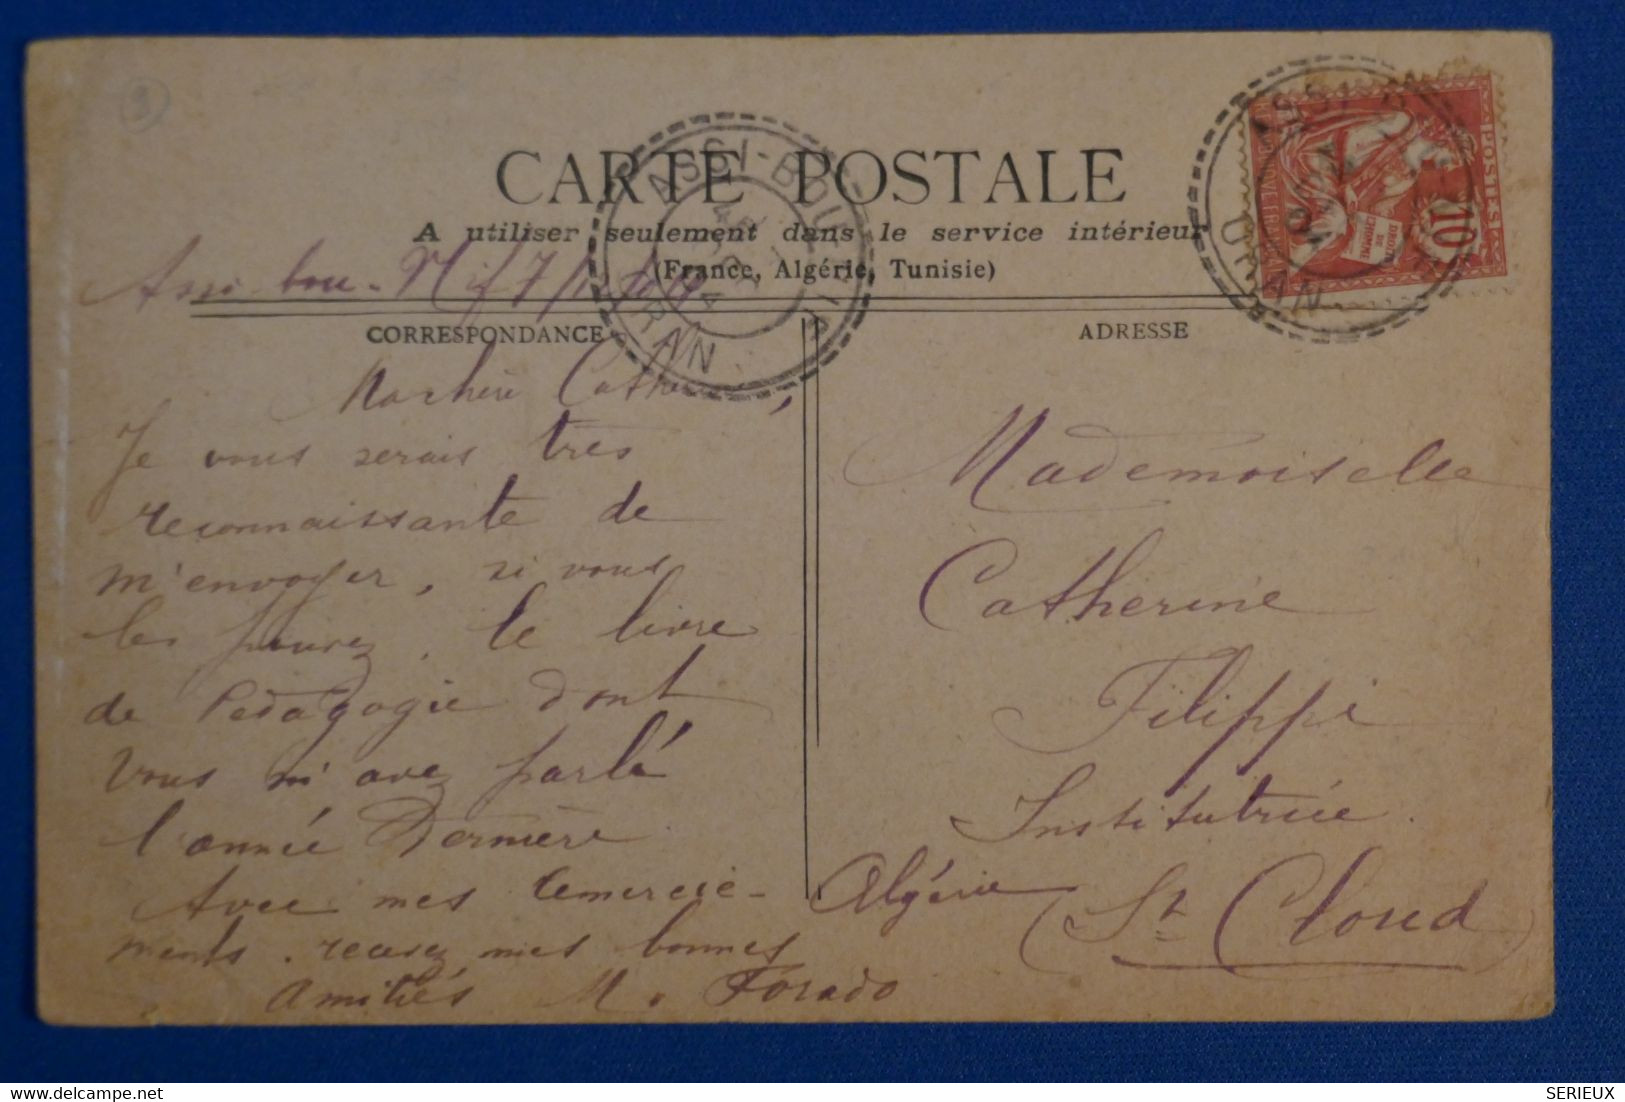 CARTE POSTALE
A utiliser seulement dans le service intérieur
(France, Algérie, Tunisie)
ASSI-BOU-NIF
ORAN
ASSI-BOU
ORAN
POSTES
10
DROITS DE L'HOMME
Assi-bou-Nif 7/
CORRESPONDANCE
ADRESSE
Ma chère Catherine,
Je vous serais très
reconnaissante de
m'envoyer, si vous
le pouvez, le livre
de Pédagogie dont
vous m'avez parlé
l'année dernière
Avec mes remercie-
ments. recevez mes bonnes
amitiés M. Forado
Mademoiselle
Catherine
Filippi
Institutrice
(St Cloud)
Algérie
SERIEUX
www.delcampe.net